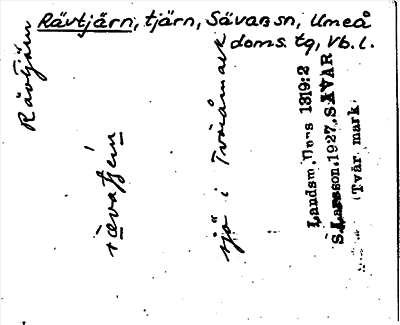 Rävtjärn, tjärn, Sävar sn, Umeå
doms. tg, Vb. l.
Rävtjärn
sjö i Tväråmark
Landsm. Upps 1319:2
S. Larsson. 1927. SÄVAR
(Tvär mark.